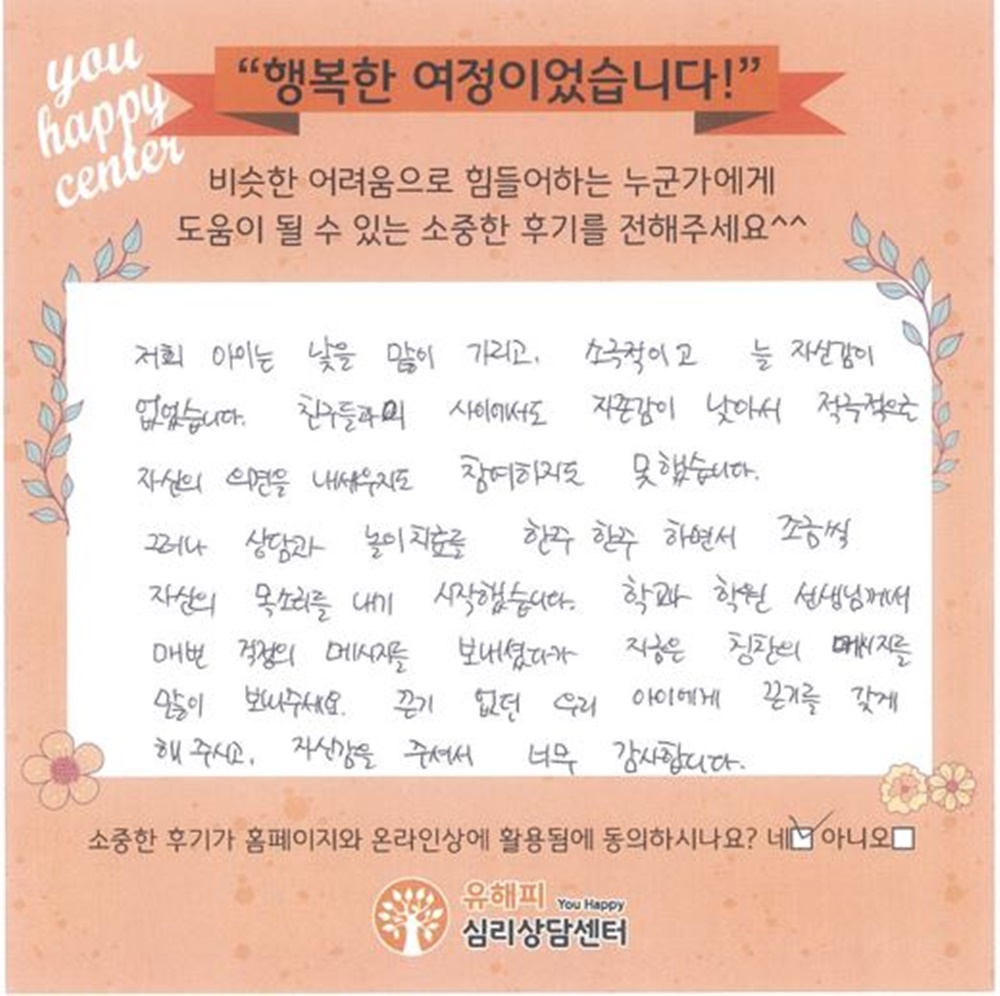 you
happy
center
“행복한 여정이었습니다!”
비슷한 어려움으로 힘들어하는 누군가에게
도움이 될 수 있는 소중한 후기를 전해주세요^^
저희 아이는 낯을 많이 가리고, 소극적이고 늘 자신감이
없었습니다. 친구들과의 사이에서도 자존감이 낮아서 적극적으로
자신의 의견을 내세우지도 참여하지도 못했습니다.
그러나 상담과 놀이치료를 한주 한주 하면서 조금씩
자신의 목소리를 내기 시작했습니다. 학교와 학원 선생님께서
매번 걱정의 메시지를 보내셨다가 지금은 칭찬의 메시지를
많이 보내주세요. 끈기 없던 우리 아이에게 끈기를 갖게
해 주시고, 자신감을 주셔서 너무 감사합니다.
소중한 후기가 홈페이지와 온라인상에 활용됨에 동의하시나요? 네 아니오
유해피 You Happy
심리상담센터